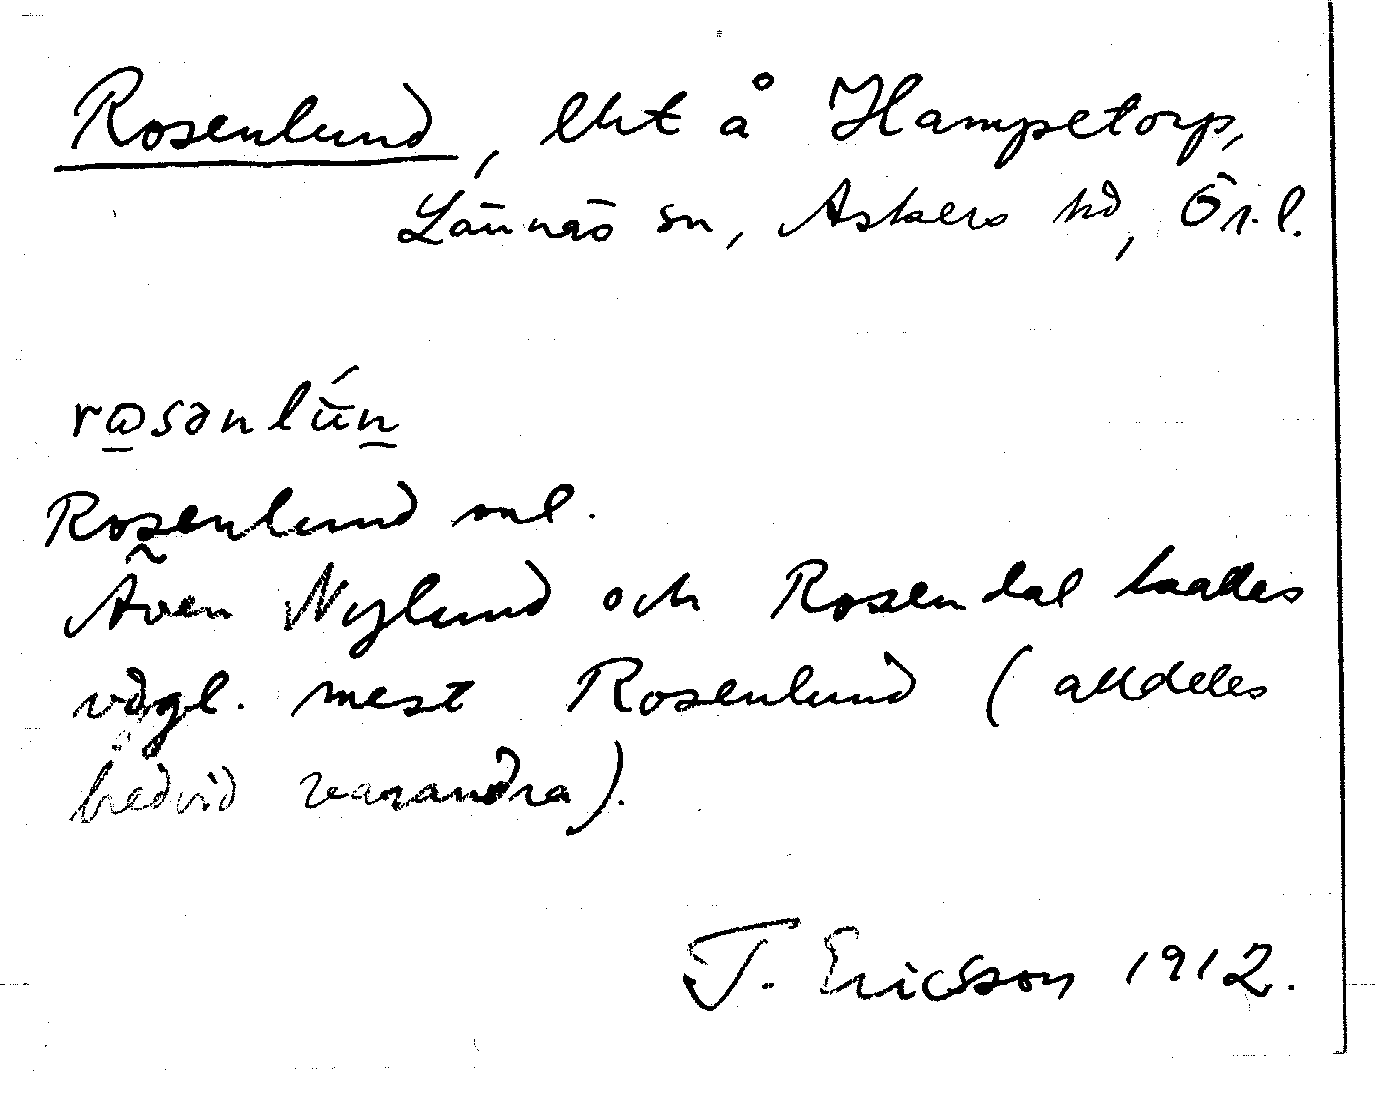 Rosenlund, lht å Hampetorp,
Lännäs sn, Askers hd, Ör. l.
rɷsənlún
Rosenlund onl.
Även Nylund och Rosendal kallas
vdgl. mest Rosenlund (alldeles
bredvid varandra).
T. Ericsson 1912.